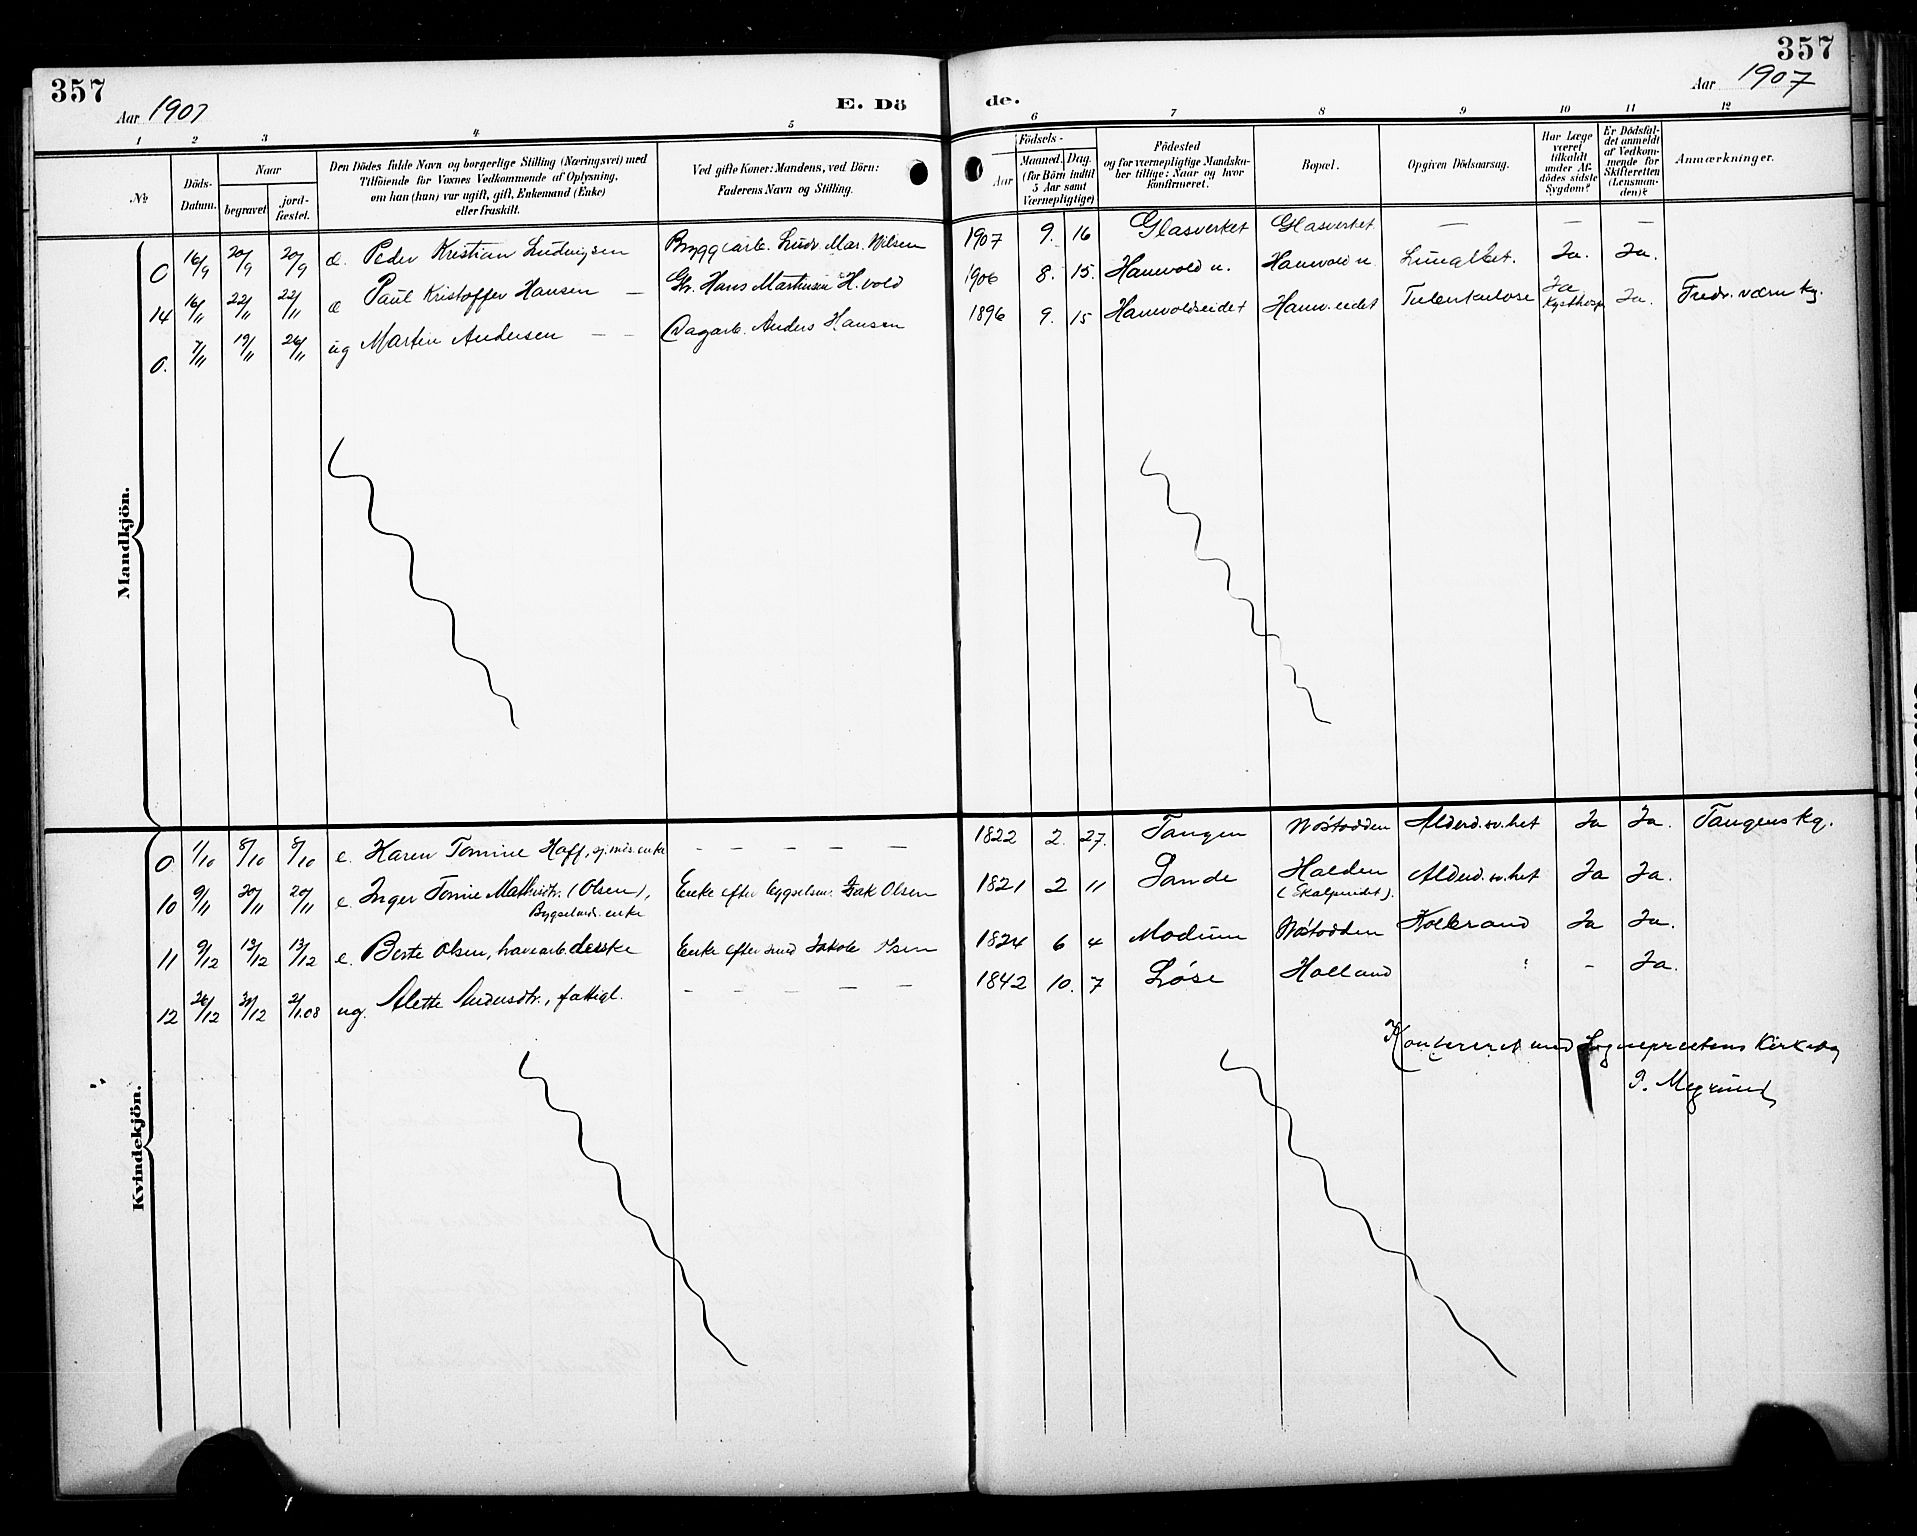 357
Aar 1907
E. Dö
1 2 3 4 5
No
Döds-Datum.
Naar
begravet.
jordfæstet.
Den Dödes fulde Navn og borgerlige Stilling (Næringsvei) med
Tilföiende for Voxnes Vedkommende af Oplysning,
om han (hun) var ugift, gift, Enkemand (Enke)
eller fraskilt.
Ved gifte Koner: Mandens, ved Börn:
Faderens Navn og Stilling.
Mandkjön.
0 16/9 20/9 20/9 Peder Kristian Ludvigsen Bryggearb. Ludv. Mar. Nilsen
14 16/11 22/11 22/11 Paul Kristoffer Hansen — Hans Martinsen H.vold
0. 7/11 19/11 26/11 ug Martin Andersen — — Dagarb. Anders Hansen
Kvindekjön.
0 1/10 8/10 8/10 e. Karen Tomine Hoff, — — — — —
10 9/11 20/11 20/11 e. Inger Tomine Mathisdtr. (Olsen), Enke efter bygselsm. Isak Olsen
Bygselmds. enke
11 9/12 13/12 13/12 e. Berte Olsen, Enke efter smed Jakob Olsen
12 26/12 31/12 2/1.08 ug. Alette Andersdtr., fattigl. — — — — —
357
Aar 1907
de.
6 7 8 9 10 11 12
Födsels-
Aar
Maaned. Dag.
(for Börn indtil
5 Aar samt
Værnepligtige)
Födested
og for værnepligtige Mandska-
ber tillige: Naar og hvor
konfirmeret.
Bopæl.
Opgiven Dödsaarsag.
Har Læge
været
tilkaldt
under Af-
dödes sidste
Sygdom?
Er Dödsfal-
det anmeldt
af Vedkom-
mende for
Skifteretten
(Lensman-
den)?
Anmærkninger.
1907 9. 16 Glasverket Glasverket — — —
1906 8. 15. Hanevold n. Hanevold n. Ja. Ja.
1896 9. 15 Hanevoldseidet Hanev.eidet Tuberkulose Ja Kysthosp. Ja. Fredr.værn kg.
1822 2. 27. Tangen Nøstodden Alderd.sv.het Ja Ja. Tangens kg.
1821 2 11 Sande Holden Alderd.sv.het Ja Ja.
1824 6 4 Modum Nøstodden Kolbrand Ja Ja.
1842 10. 7 Løse Holland — Ja.
Konfereret med Sogneprestens Kirkebog